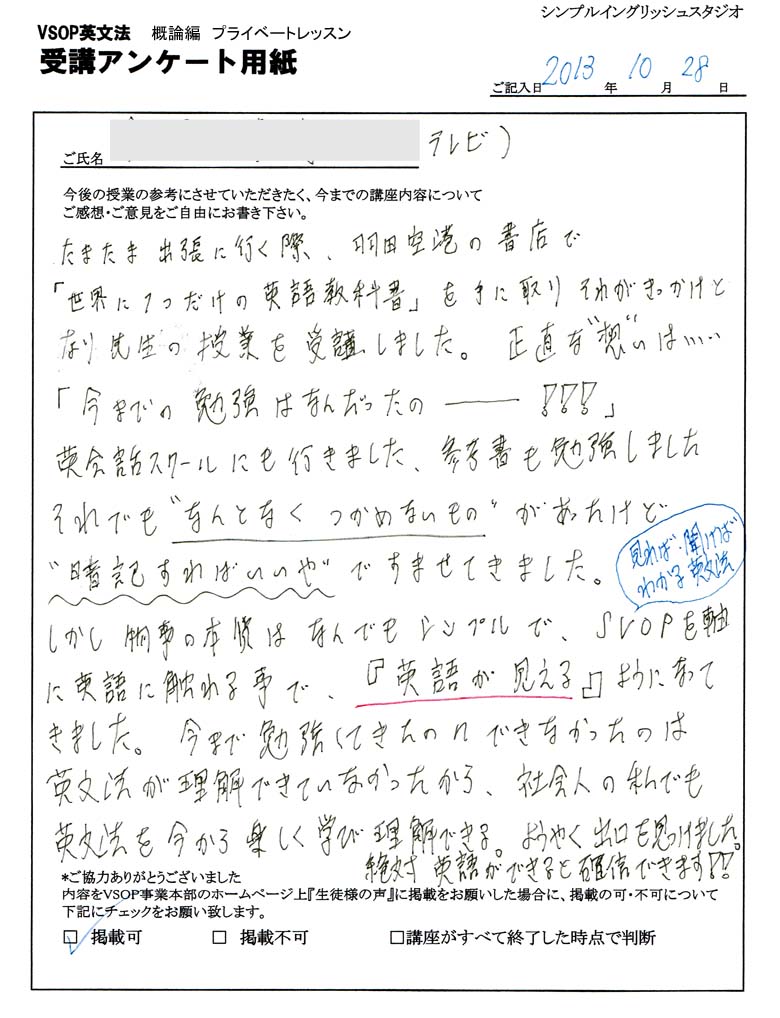 シンプルイングリッシュスタジオ
VSOP英文法 概論編 プライベートレッスン
受講アンケート用紙
ご記入日 2013 年 10 月 28 日
ご氏名 テレビ)
今後の授業の参考にさせていただきたく、今までの講座内容について
ご感想・ご意見をご自由にお書き下さい。
たまたま 出張に行く際、羽田空港の書店で
「世界に1つだけの英語教科書」を手に取り それがきっかけと
なり先生の授業を受講しました。 正直な"想"いは……
「今までの勉強はなんだったの ── !!!」
英会話スクールにも行きました、参考書も勉強しました
それでも"なんとなく つかめないもの"があったけど
"暗記すればいいや"ですませてきました。
見れば・聞けば
わかる 英文法
しかし 物事の本質は なんでも シンプルで、SVOPを軸
に英語に触れる事で、『英語が見える』ようになって
きました。 今まで勉強してきたのに できなかったのは
英文法が理解できていなかったから、社会人の私でも
英文法を今から楽しく学び理解できる。ようやく出口を見つけました。
絶対 英語ができると確信できます!!
*ご協力ありがとうございました
内容をVSOP事業本部のホームページ上『生徒様の声』に掲載をお願いした場合に、掲載の可・不可について
下記にチェックをお願い致します。
☑ 掲載可 □ 掲載不可 □講座がすべて終了した時点で判断